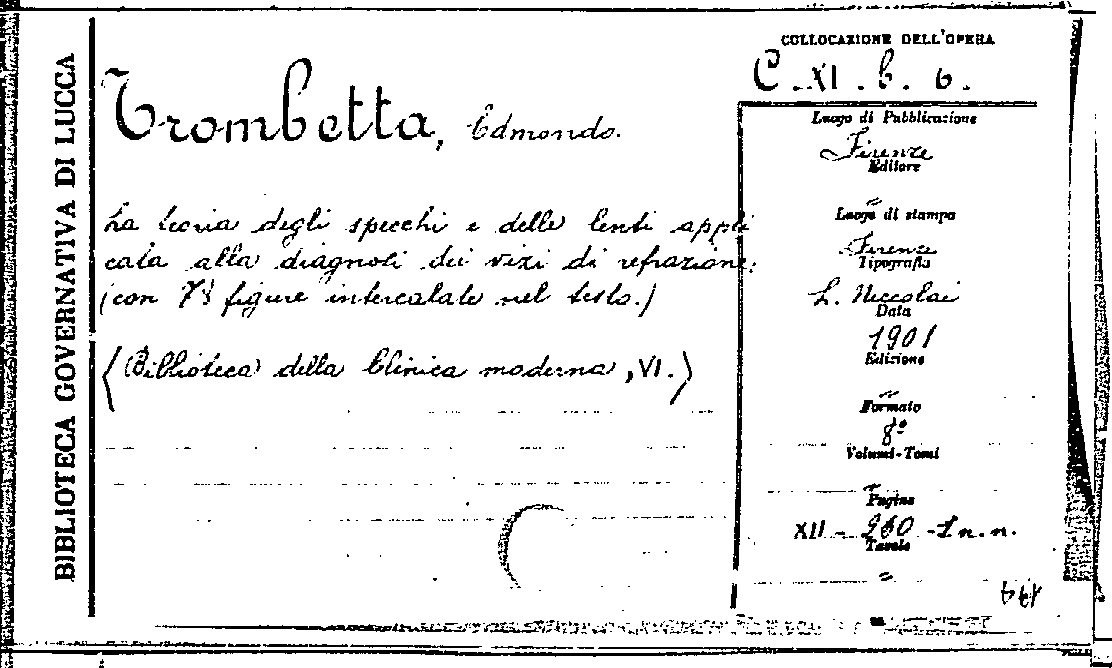 BIBLIOTECA GOVERNATIVA DI LUCCA
COLLOCAZIONE DELL'OPERA
C. XI. b. 6.
Trombetta, Edmondo.
La teoria degli specchi e delle lenti appli
cata alla diagnosi dei vizi di refrazione.
(con 78 figure intercalate nel testo.)
(Biblioteca della Clinica moderna, VI.)
Luogo di Pubblicazione
Firenze
Editore
"
Luogo di stampa
Firenze
Tipografia
L. Niccolai
Data
1901
Edizione
"
Formato
8º
Volumi-Tomi
"
Pagine
XII - 260 - 1 n. n.
Tavole
"